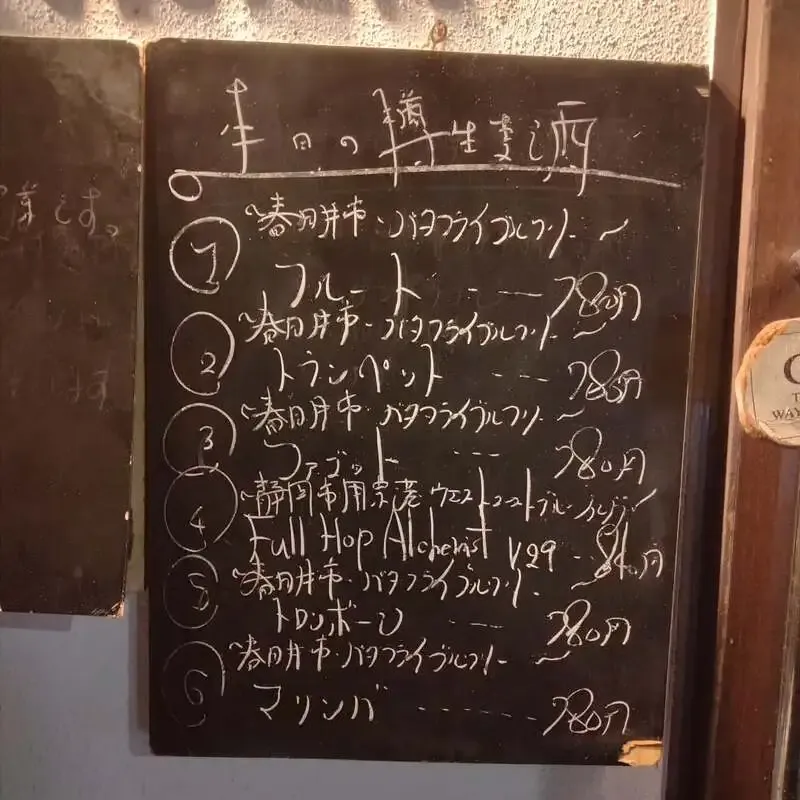 本日の樽生麦し酒
業です。
① ~春日井市・バタフライブルワリー~
フルート ---- 780円
② ~春日井市・バタフライブルワリー~
トランペット --- 780円
③ ~春日井市・バタフライブルワリー~
ファゴット --- 780円
④ ~静岡市用宗港 ウエストコーストブルーイング~
Full Hop Alchemist V29 -- 840円
⑤ ~春日井市・バタフライブルワリー~
トロンボーン --- 780円
⑥ ~春日井市・バタフライブルワリー~
マリンバ ------ 780円
WAY